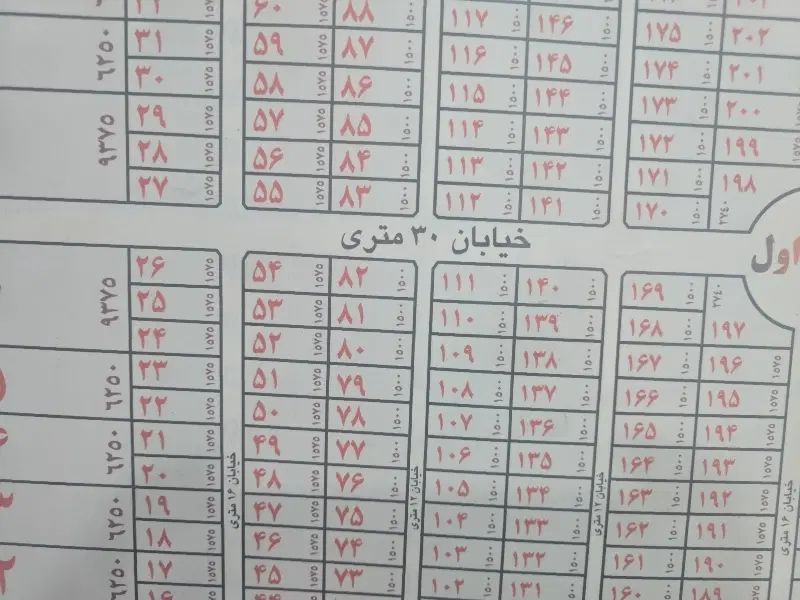 ۶۰ ۱۵۷۵ ۸۸ ۱۵۰۰
۱۱۷ ۱۵۰۰ ۱۴۶
۱۷۵ ۱۵۰۰ ۲۰۲
۶۲۵۰ ۳۱ ۱۵۷۵ ۵۹ ۱۵۷۵ ۸۷ ۱۵۰۰ ۱۱۶ ۱۵۰۰ ۱۴۵ ۱۵۰۰ ۱۷۴ ۱۵۰۰ ۲۰۱
۳۰ ۱۵۷۵ ۵۸ ۱۵۷۵ ۸۶ ۱۵۰۰ ۱۱۵ ۱۵۰۰ ۱۴۴ ۱۵۰۰ ۱۷۳ ۱۵۰۰ ۲۰۰
۹۳۷۵ ۲۹ ۱۵۷۵ ۵۷ ۱۵۷۵ ۸۵ ۱۵۰۰ ۱۱۴ ۱۵۰۰ ۱۴۳ ۱۵۰۰ ۱۷۲ ۱۵۰۰ ۱۹۹ ۱۵۷۵
۲۸ ۱۵۷۵ ۵۶ ۱۵۷۵ ۸۴ ۱۵۰۰ ۱۱۳ ۱۵۰۰ ۱۴۲ ۱۵۰۰ ۱۷۱ ۱۹۸
۲۷ ۱۵۷۵ ۵۵ ۱۵۷۵ ۸۳ ۱۵۰۰ ۱۱۲ ۱۵۰۰ ۱۴۱ ۱۵۰۰ ۱۷۰ ۱۵۰۰ ۲۷۴۰
خیابان ۳۰ متری
اول
۲۶ ۱۵۷۵ ۵۴ ۱۵۷۵ ۸۲ ۱۵۰۰ ۱۱۱ ۱۵۰۰ ۱۴۰ ۱۵۰۰ ۱۶۹ ۱۵۰۰ ۲۷۴۰
۹۳۷۵ ۲۵ ۱۵۷۵ ۵۳ ۱۵۷۵ ۸۱ ۱۵۰۰ ۱۱۰ ۱۵۰۰ ۱۳۹ ۱۵۰۰ ۱۶۸ ۱۵۰۰ ۱۹۷
۲۴ ۱۵۷۵ ۵۲ ۱۵۷۵ ۸۰ ۱۵۰۰ ۱۰۹ ۱۵۰۰ ۱۳۸ ۱۵۰۰ ۱۶۷ ۱۵۰۰ ۱۹۶ ۱۵۷۵
۶۲۵۰ ۲۳ ۱۵۷۵ ۵۱ ۱۵۷۵ ۷۹ ۱۵۰۰ ۱۰۸ ۱۵۰۰ ۱۳۷ ۱۵۰۰ ۱۶۶ ۱۵۰۰ ۱۹۵ ۱۵۷۵
۲۲ ۱۵۷۵ ۵۰ ۱۵۷۵ ۷۸ ۱۵۰۰ ۱۰۷ ۱۵۰۰ ۱۳۶ ۱۵۰۰ ۱۶۵ ۱۵۰۰ ۱۹۴ ۱۵۷۵
۶۲۵۰ ۲۱ ۱۵۷۵ ۴۹ ۱۵۷۵ ۷۷ ۱۵۰۰ ۱۰۶ ۱۵۰۰ ۱۳۵ ۱۵۰۰ ۱۶۴ ۱۵۰۰ ۱۹۳ ۱۵۷۵
۲۰ ۱۵۷۵ ۴۸ ۱۵۷۵ ۷۶ ۱۵۰۰ ۱۰۵ ۱۵۰۰ ۱۳۴ ۱۵۰۰ ۱۶۳ ۱۵۰۰ ۱۹۲ ۱۵۷۵
خیابان ۱۶ متری
خیابان ۱۲ متری
خیابان ۱۲ متری
خیابان ۱۶ متری
۶۲۵۰ ۱۹ ۱۵۷۵ ۴۷ ۱۵۷۵ ۷۵ ۱۵۰۰ ۱۰۴ ۱۵۰۰ ۱۳۳ ۱۵۰۰ ۱۶۲ ۱۵۰۰ ۱۹۱ ۱۵۷۵
۱۸ ۱۵۷۵ ۴۶ ۱۵۷۵ ۷۴ ۱۵۰۰ ۱۰۳ ۱۵۰۰ ۱۳۲ ۱۵۰۰ ۱۶۱ ۱۵۰۰ ۱۹۰ ۱۵۷۵
۶۲۵۰ ۱۷ ۱۵۷۵ ۴۵ ۱۵۷۵ ۷۳ ۱۵۰۰ ۱۰۲ ۱۵۰۰ ۱۳۱ ۱۵۰۰ ۱۶۰ ۱۸۹